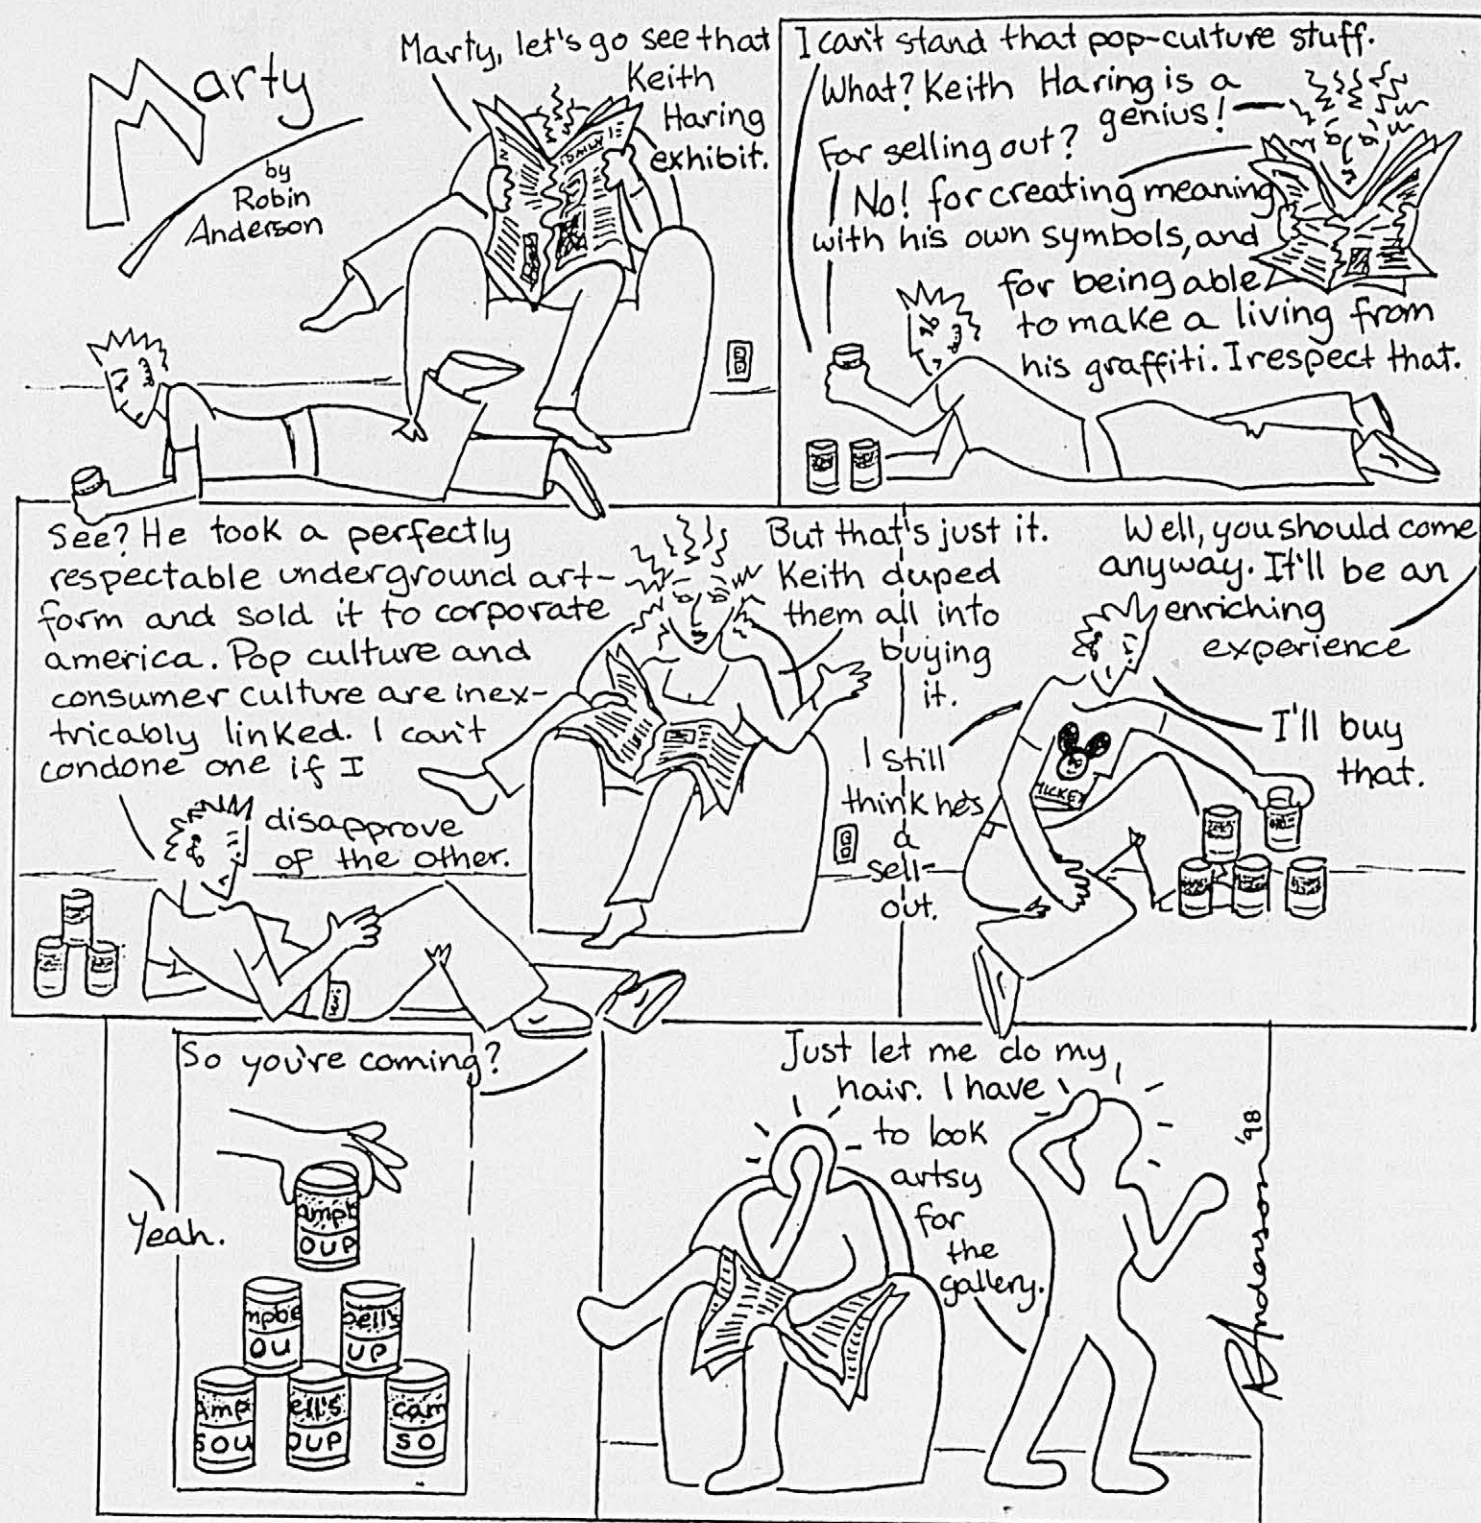 Marty
by
Robin
Anderson
Marty, let's go see that
Keith
Haring
exhibit.
DAILY
I can't stand that pop-culture stuff.
What? Keith Haring is a
genius!
For selling out?
No! for creating meaning
with his own symbols, and
for being able
to make a living from
his graffiti. I respect that.
See? He took a perfectly
respectable underground art-
form and sold it to corporate
america. Pop culture and
consumer culture are inex-
tricably linked. I can't
condone one if I
disapprove
of the other.
But that's just it.
Keith duped
them all into
buying
it.
I still
think he's
a
sell-
out.
Well, you should come
anyway. It'll be an
enriching
experience
MICKEY
I'll buy
that.
So you're coming?
Yeah.
ampb
OUP
mpbe
OU
bell's
UP
amp
SOU
ell's
OUP
cam
SO
Just let me do my
hair. I have
to look
artsy
for
the
gallery.
Anderson '98